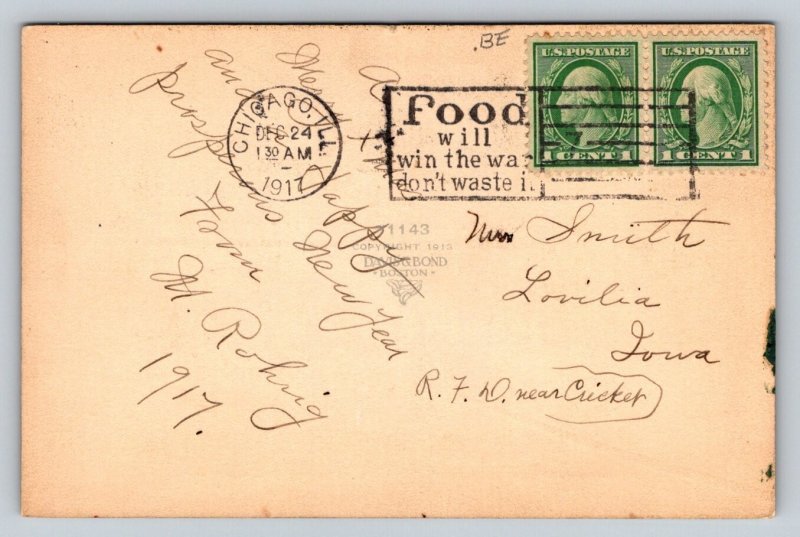 .BE
U.S. POSTAGE
U.S. POSTAGE
1 CENT 1
1 CENT 1
CHICAGO, ILL.
DEC 24
1 30 AM
1917
Food
will
win the war
don't waste i
A
Merry Xmas
and Happy
prosperous New Year
From
M. Rohrig
1917.
11143
COPYRIGHT 1913
DAVIS & BOND
BOSTON
Smith
Lovilia
Iowa
R. F. D. near Cricket